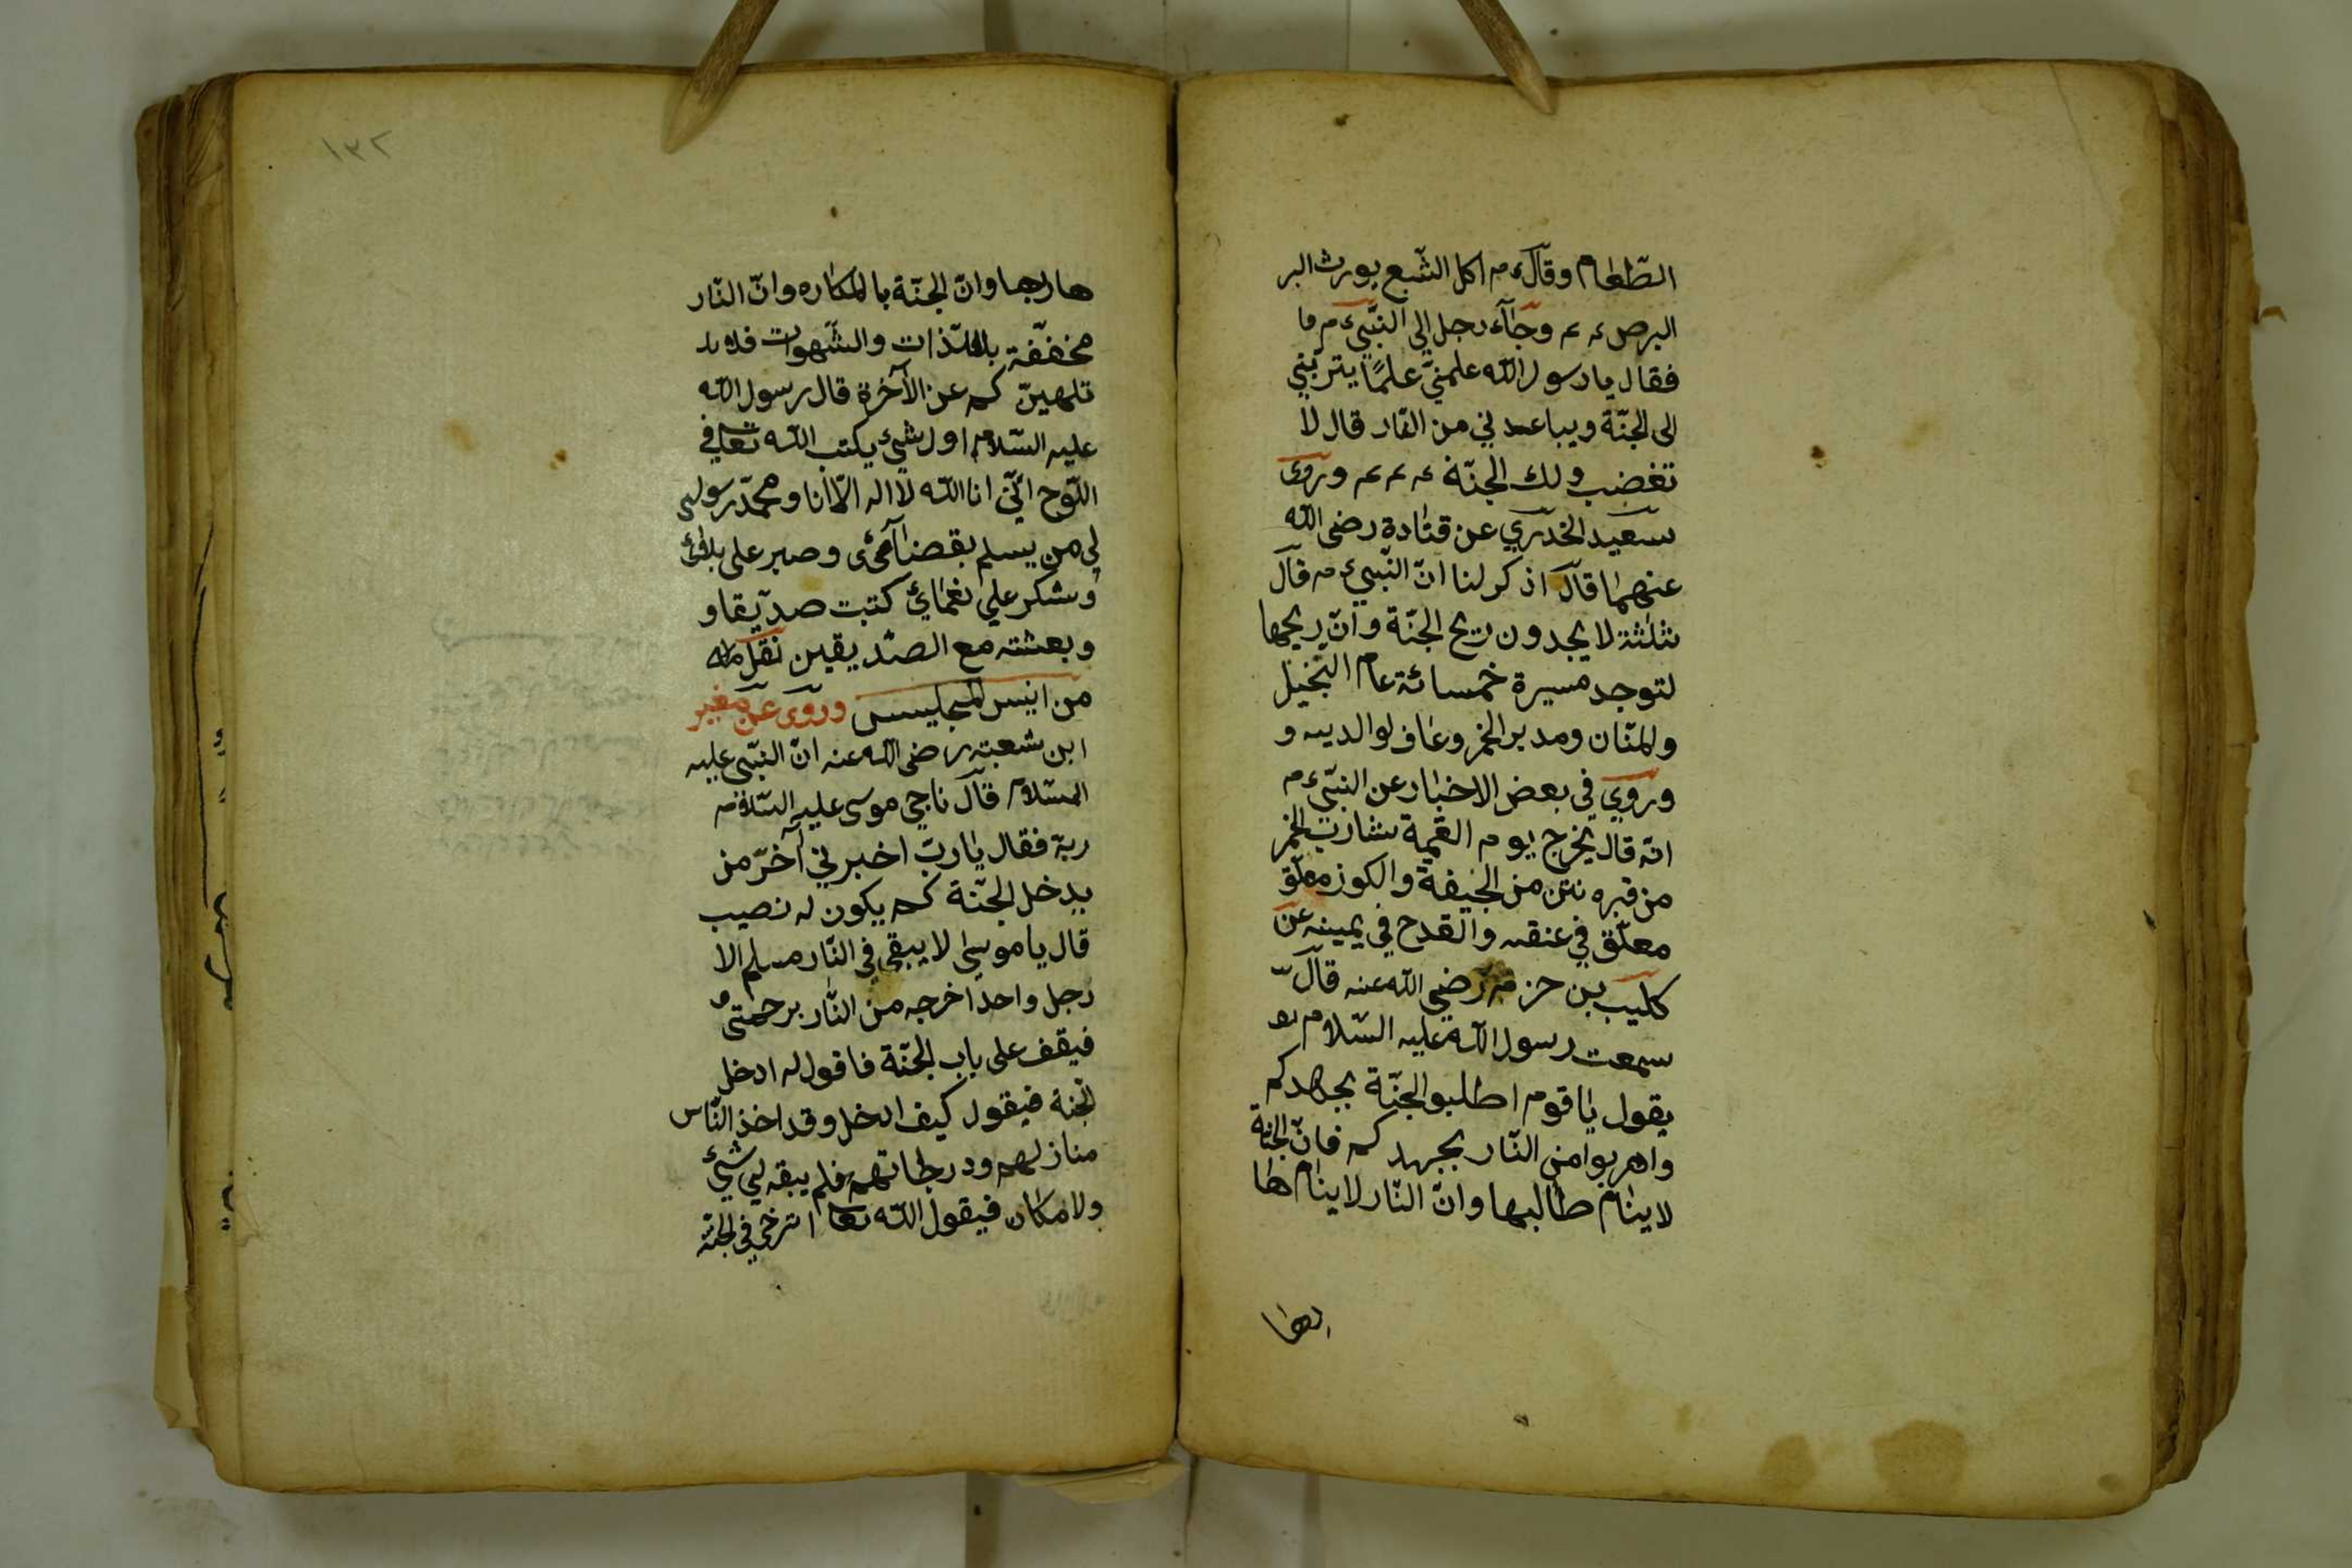 الطّعام وقالءم اكل الشّبع يورث البر
البرص ء م وجآء رجل الى النبّيءم ما
فقال يا رسول الله علمنيّ علمًا يتربني
الى الجنّة ويباعد ني من النّار قال لا
تغضب ولك الجنّة ء م ء م وروى
سعيد الخدري عن قتادة رضى الله
عنهما قال اذكر لنا انّ النّبيءم قال
ثلثة لا يجدون ريح الجنّة وانّ ريحها
لتوجد مسيرة خمسائة عام البخيل
والمنّان ومد بر الخمر وعاف لوالديه و
وروي في بعض الاخبار عن النبّيءم
انّه قال يخرج يوم القيمة شارب الخمر
من قبره نتن من الجيفة والكوز معلّق
معلّق في عنقه والقدح في يمينه عن
كليب بن حزم رضي الله عنه قال
سمعت رسول الله عليه السّلام
يقول يا قوم اطلبوا الجنّة بجهدكم
واهربوا من النّار بجهدكم فانّ الجنّة
لا ينام طالبها وانّ النّار لا ينام ها
ارها
١٣٢
هاربها وانّ الجنّة بالمكاره وانّ النّار
مخففّة باللذّات والشّهوات فلا
تلهينّكم عن الآخرة قال رسول الله
عليه السّلام اول شيء يكتب الله تعا في
اللّوح انّي انا الله لا اله الّا انا ومحمّد رسولى
لي من يسلم بقضآئى وصبر على بلائ
وشكر على نعمائ كتبت صدّيقا و
وبعثته مع الصّديقين نقل
من انيس المجليس وروى عن مغير
ابن شعبته رضى الله عنه انّ النبّى عليه
السّلام قال ناجي موسى عليه السّلام
ربّه فقال يا ربّ اخبرني آخر من
يدخل الجنّة كم يكون له نصيب
قال يا موسى لا يبقى في النّار مسلم الا
رجل واحد اخرجه من النّار برحمتى
فيقف على باب الجنّة فاقول له ادخل
الجنة فيقول كيف ادخل وقد اخذ النّاس
منازلهم ودرجاتهم فلم يبقه لي شيء
ولا مكان فيقول الله تعا اترضى في الجنّة